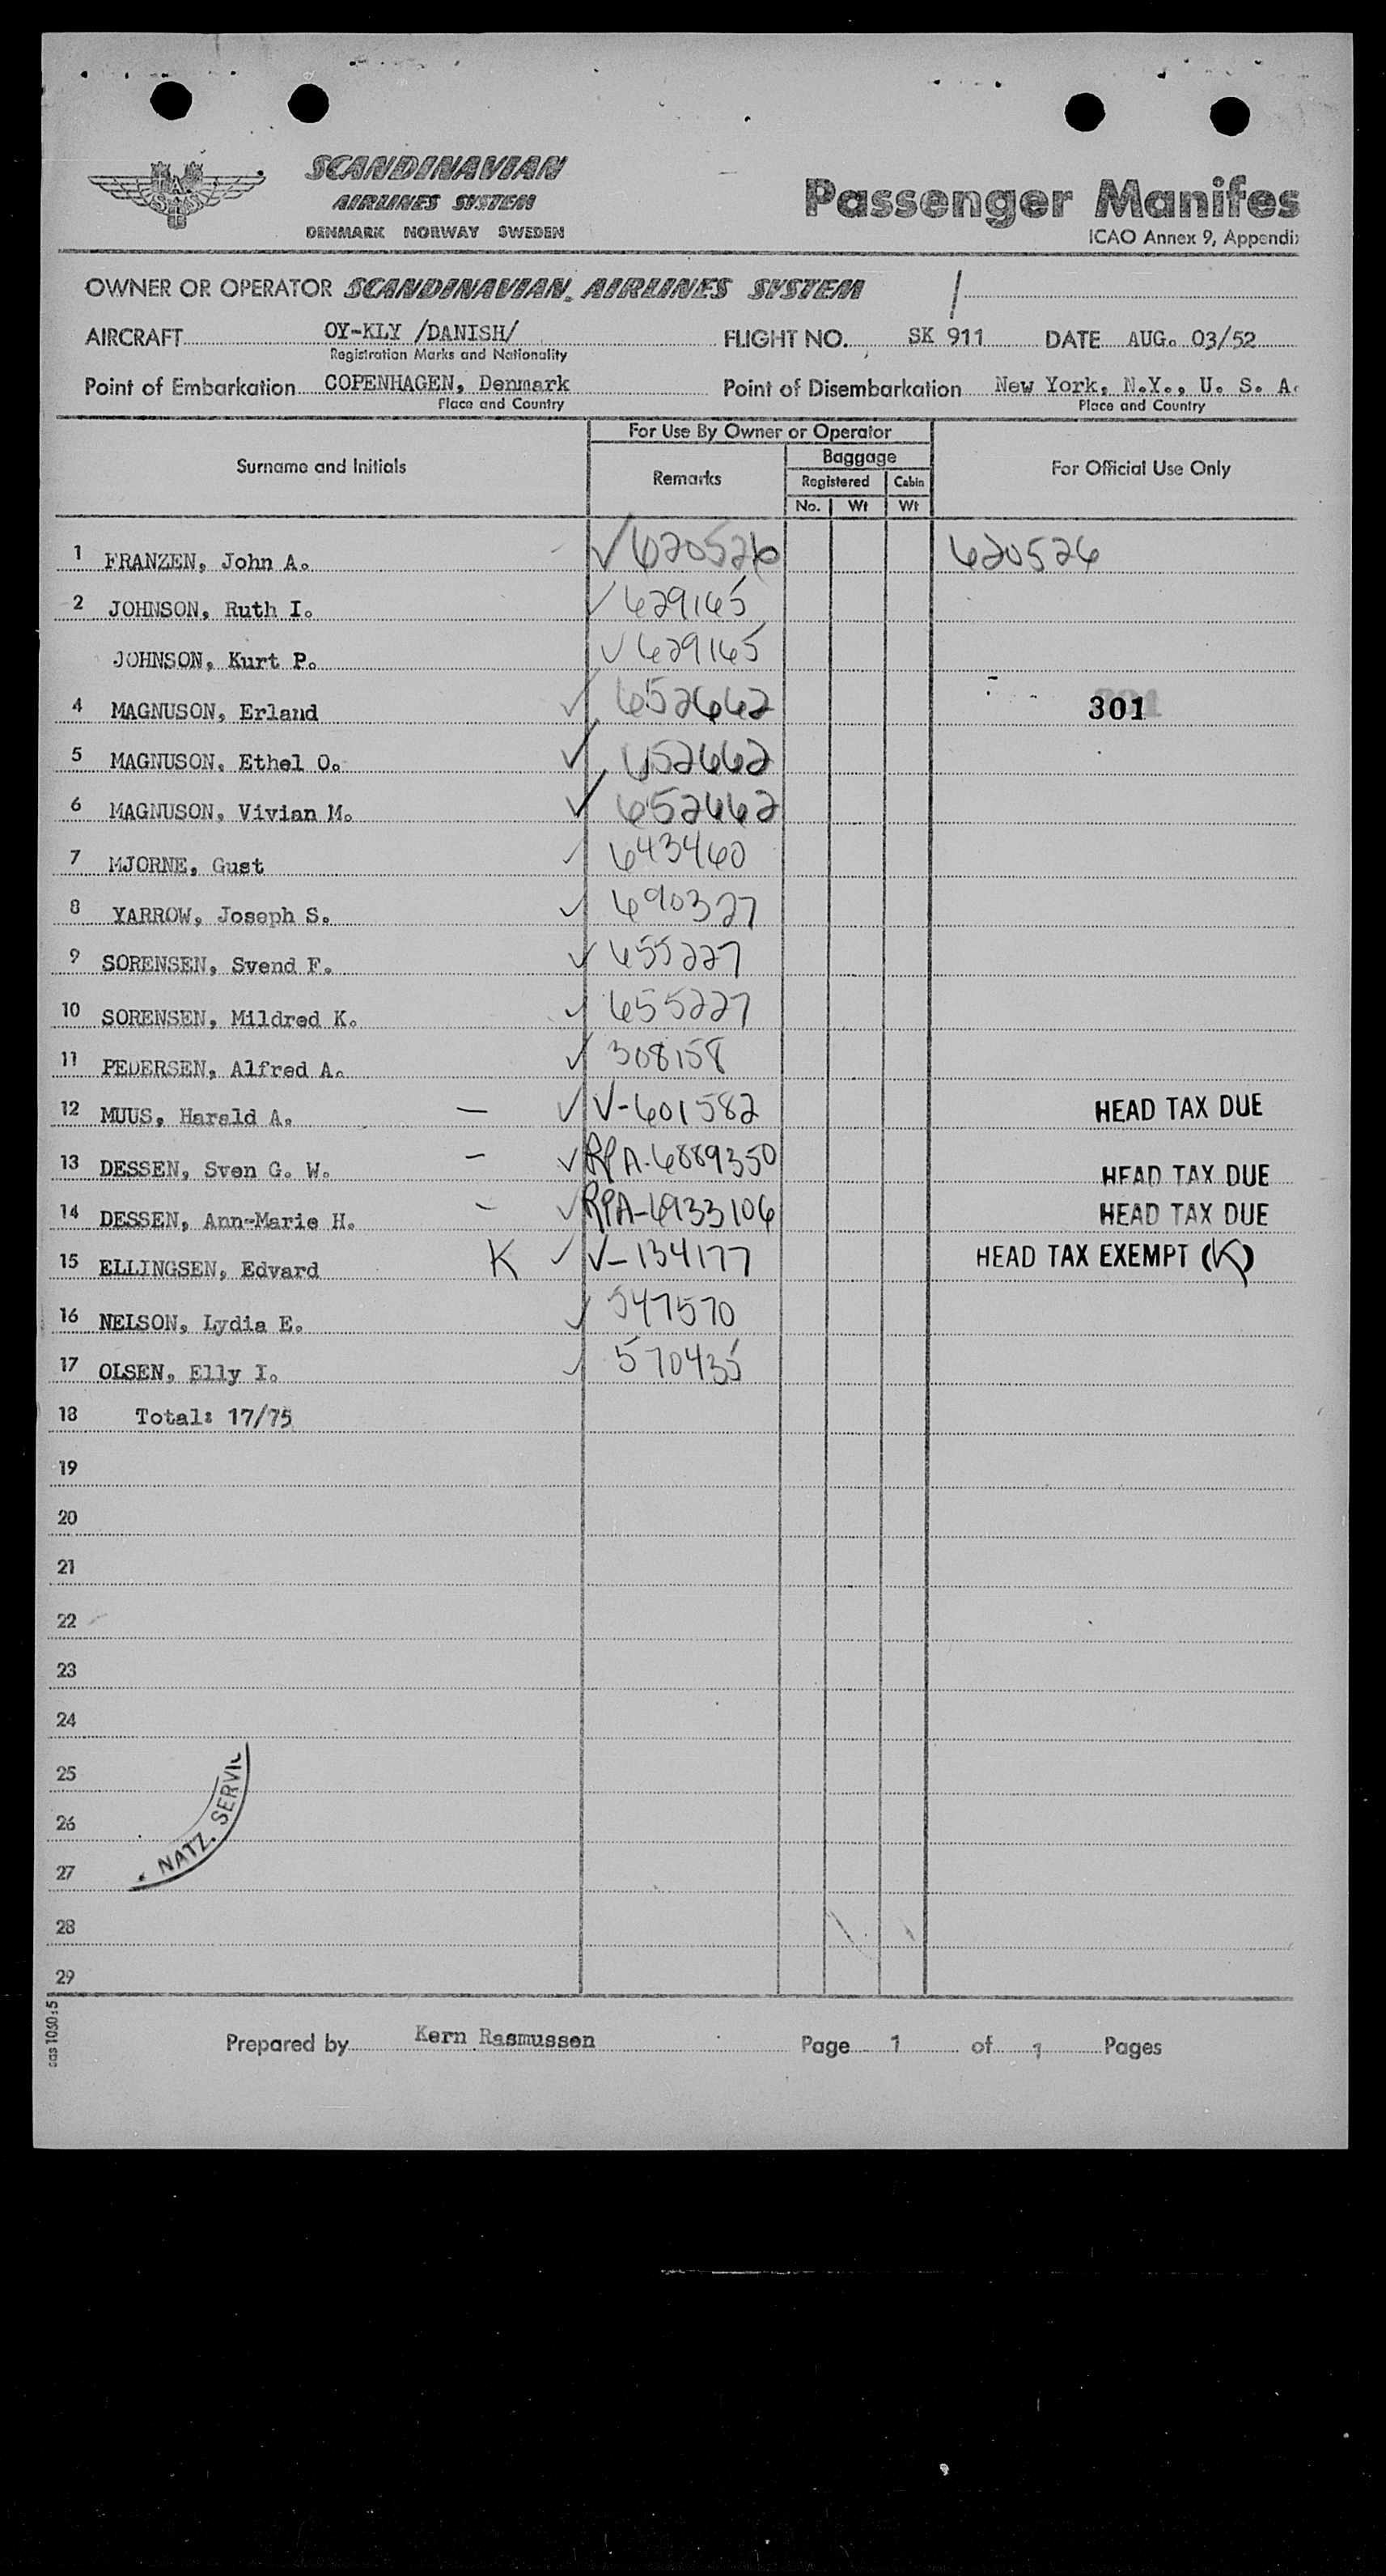 SCANDINAVIAN
AIRLINES SYSTEM
DENMARK NORWAY SWEDEN
S.A.S
Passenger Manifes
ICAO Annex 9, Appendix
OWNER OR OPERATOR SCANDINAVIAN AIRLINES SYSTEM /
AIRCRAFT OY-KLY /DANISH/ FLIGHT NO. SK 911 DATE AUG. 03/52
Registration Marks and Nationality
Point of Embarkation COPENHAGEN, Denmark Point of Disembarkation New York, N.Y., U. S. A.
Place and Country Place and Country
Surname and Initials For Use By Owner or Operator For Official Use Only
Remarks Baggage
Registered Cabin
No. Wt Wt
1 FRANZEN, John A. ✓ 620526 620526
2 JOHNSON, Ruth I. ✓ 629165
JOHNSON, Kurt P. ✓ 629165
4 MAGNUSON, Erland ✓ 652662 301
5 MAGNUSON, Ethel O. ✓ 652662
6 MAGNUSON, Vivian M. ✓ 652662
7 MJORNE, Gust ✓ 643460
8 YARROW, Joseph S. ✓ 690327
9 SORENSEN, Svend F. ✓ 655227
10 SORENSEN, Mildred K. ✓ 655227
11 PEDERSEN, Alfred A. ✓ 308158
12 MUUS, Harald A. — ✓ V-601582 HEAD TAX DUE
13 DESSEN, Sven G. W. — ✓ RPA-6889350 HEAD TAX DUE
14 DESSEN, Ann-Marie H. — ✓ RPA-6933106 HEAD TAX DUE
15 ELLINGSEN, Edvard K ✓ V-134177 HEAD TAX EXEMPT (K)
16 NELSON, Lydia E. ✓ 547570
17 OLSEN, Elly I. ✓ 570435
18 Total: 17/75
19
20
21
22
23
24
25
26
27
28
29
NATZ. SERVIC
sas 1030:5
Prepared by Kern Rasmussen Page 1 of 1 Pages